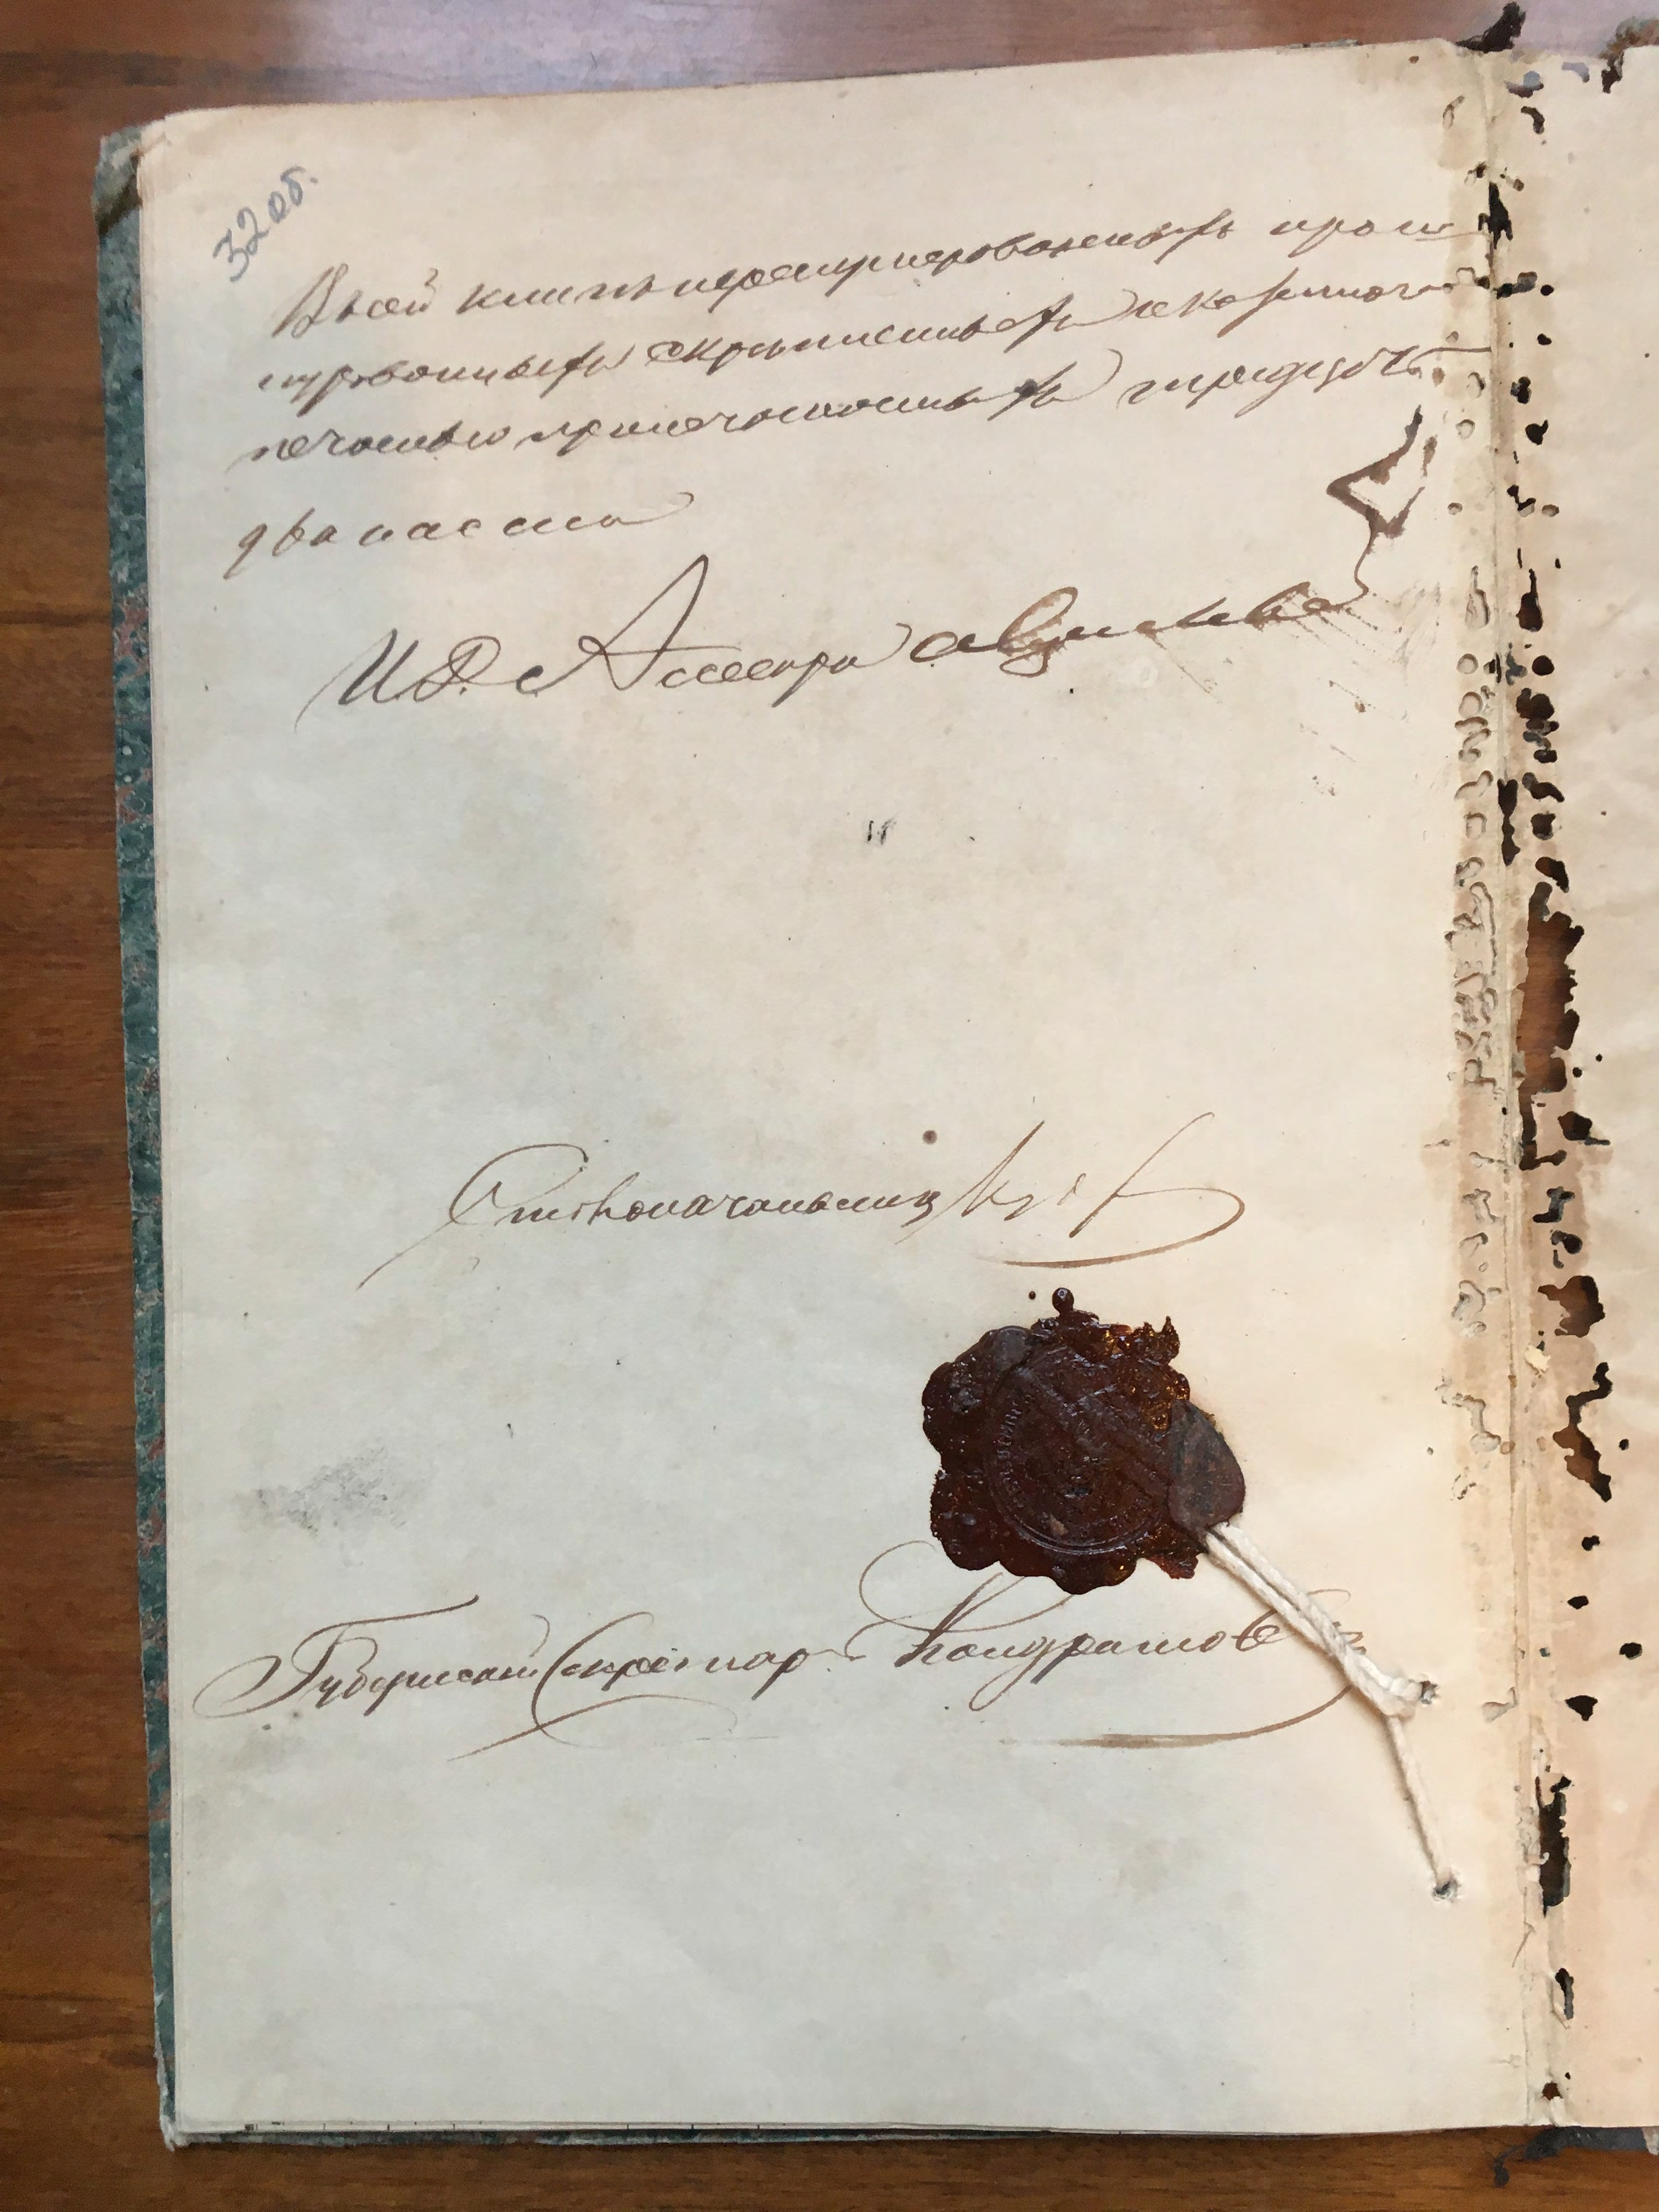 32 об.
Въ сей книгѣ перенумерованныхъ прош
нурованныхъ скрѣпленныхъ и казенною
печатью припечатанныхъ тридцать
два листа
И. Д. Ассесора
Столоначальникъ
Губернскій Секретарь Кондратовъ